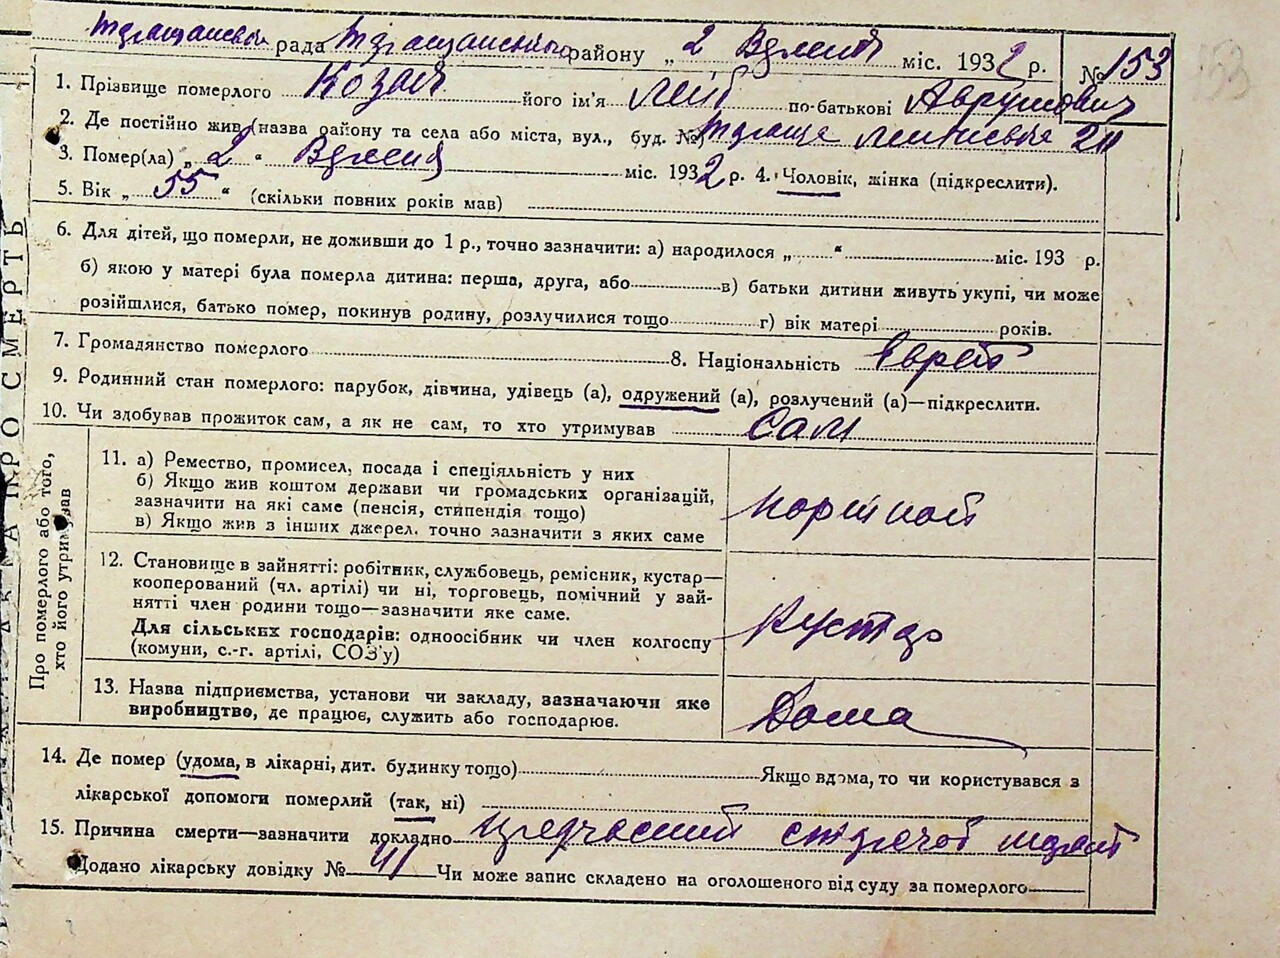 рада району „ 2 міс. 1932 р. № 153
1. Прізвище померлого Козак його ім'я Лейб по-батькові Аврумович
2. Де постійно жив (назва району та села або міста, вул., буд. №)
3. Помер(ла) „ 2 " міс. 1932 р. 4. Чоловік, жінка (підкреслити).
5. Вік „ 55 " (скільки повних років мав)
6. Для дітей, що померли, не доживши до 1 р., точно зазначити: а) народилося „ " міс. 193 р.
б) якою у матері була померла дитина: перша, друга, або в) батьки дитини живуть укупі, чи може
розійшлися, батько помер, покинув родину, розлучилися тощо г) вік матері років.
7. Громадянство померлого 8. Національність Єврей
9. Родинний стан померлого: парубок, дівчина, удівець (а), одружений (а), розлучений (а)—підкреслити.
10. Чи здобував прожиток сам, а як не сам, то хто утримував Сам
Про померлого або того,
хто його утримував
11. а) Ремество, промисел, посада і спеціяльність у них
б) Якщо жив коштом держави чи громадських організацій,
зазначити на які саме (пенсія, стипендія тощо)
в) Якщо жив з інших джерел, точно зазначити з яких саме
12. Становище в зайнятті: робітник, службовець, ремісник, кустар—
кооперований (чл. артілі) чи ні, торговець, помічний у зай-
нятті член родини тощо—зазначити яке саме.
Для сільських господарів: одноосібник чи член колгоспу
(комуни, с.-г. артілі, СОЗ'у)
Кустар
13. Назва підприємства, установи чи закладу, зазначаючи яке
виробництво, де працює, служить або господарює.
Дома
14. Де помер (удома, в лікарні, дит. будинку тощо) Якщо вдома, то чи користувався з
лікарської допомоги померлий (так, ні)
15. Причина смерти—зазначити докладно
Додано лікарську довідку № 41 Чи може запис складено на оголошеного від суду за померлого
153